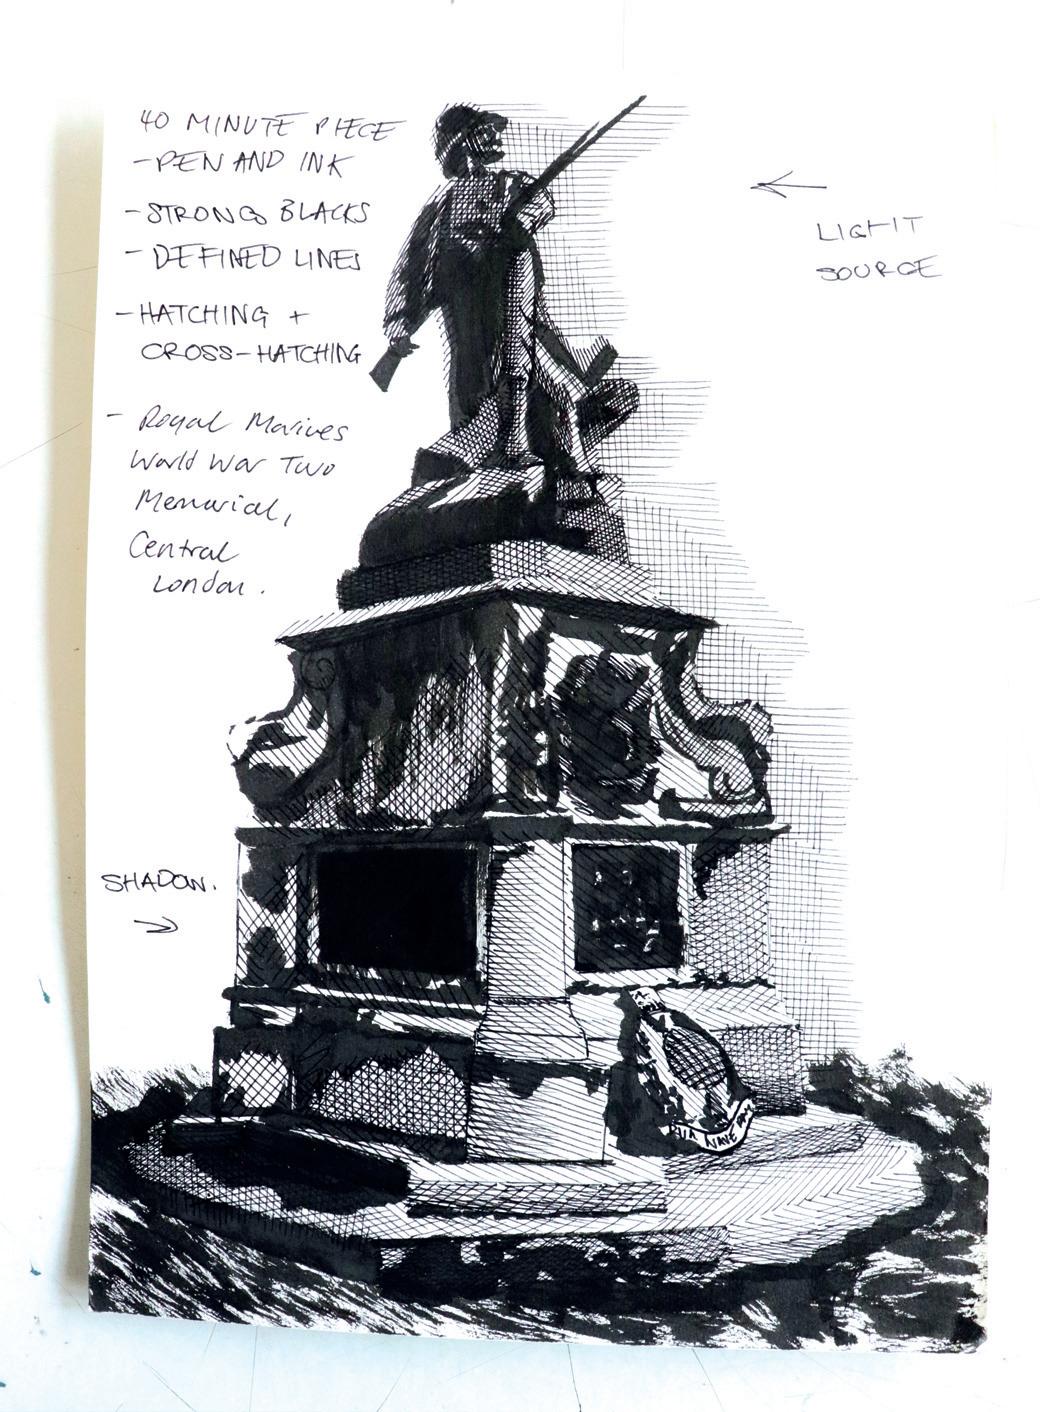 40 MINUTE PIECE
- PEN AND INK
- STRONG BLACKS
- DEFINED LINES
- HATCHING +
CROSS-HATCHING
- Royal Marines
World War Two
Memorial,
Central
London.
LIGHT
SOURCE
SHADOW.